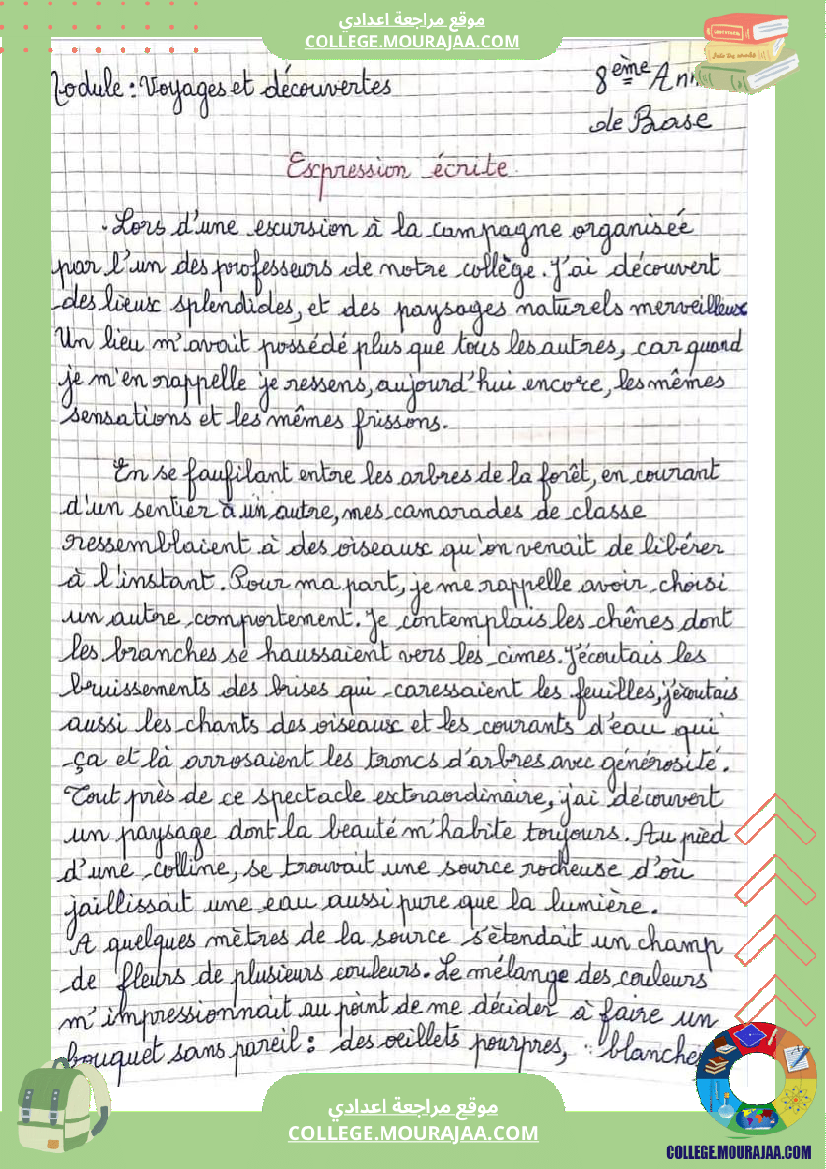 موقع مراجعة اعدادي
COLLEGE.MOURAJAA.COM
Module : Voyages et découvertes
8ème Ann
de Base
Expression écrite
Lors d'une escursion à la campagne organisée
par l'un des professeurs de notre collège. J'ai découvert
des lieux splendides, et des paysages naturels merveilleux
Un lieu m'avait possédé plus que tous les autres, car quand
je m'en rappelle je ressens, aujourd'hui encore, les mêmes
sensations et les mêmes frissons.
En se faufilant entre les arbres de la forêt, en courant
d'un sentier à un autre, mes camarades de classe
ressemblaient à des oiseaux qu'on venait de libérer
à l'instant. Pour ma part, je me rappelle avoir choisi
un autre comportement. Je contemplais les chênes dont
les branches se haussaient vers les cimes. J'écoutais les
bruissements des brises qui caressaient les feuilles, j'écoutais
aussi les chants des oiseaux et les courants d'eau qui
ça et là arrosaient les troncs d'arbres avec générosité.
Tout près de ce spectacle extraordinaire, j'ai découvert
un paysage dont la beauté m'habite toujours. Au pied
d'une colline, se trouvait une source rocheuse d'où
jaillissait une eau aussi pure que la lumière.
A quelques mètres de la source s'étendait un champ
de fleurs de plusieurs couleurs. Le mélange des couleurs
m'impressionnait au point de me décider à faire un
bouquet sans pareil : des oeillets pourpres, blanches
موقع مراجعة اعدادي
COLLEGE.MOURAJAA.COM
COLLEGE.MOURAJAA.COM